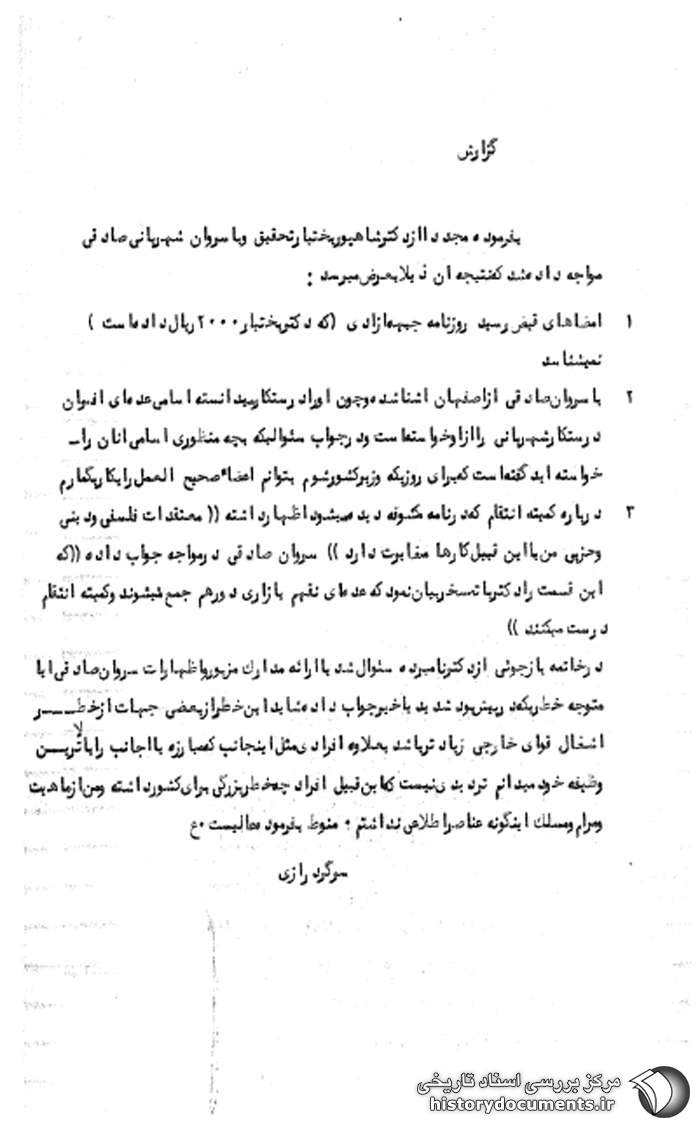 گزارش
بفرموده مجددا از دکتر شاهپور بختیار تحقیق وبا سروان شهربانی صادقی
مواجه داده شد که نتیجه ان ذیلا بعرض میرسد :
۱ امضاهای قبض رسید روزنامه جبهه ازادی (که دکتر بختیار ۲۰۰۰ ریال داده است )
نمیشناسد
۲ با سروان صادقی ازاصفهان اشنا شده وچون اورا درستکار میدانسته اسامی عده ای افسران
درستکار شهربانی را ازاو خواسته است ودرجواب سئوالیکه بچه منظوری اسامی انان را
خواسته اید گفته است که برای روزیکه وزیر کشور شوم بتوانم اعضاء صحیح العمل رابکار بگمارم
۳ درباره کمیته انتقام که در نامه مکشوفه دیده میشود اظهار داشته (( معتقدات فلسفی ودینی
وحزبی من با این قبیل کارها مغایرت دارد )) سروان صادقی درمواجه جواب داده ((که
این قسمت را دکتر با تمسخر بیان نمود که عده ای نفهم بازاری دورهم جمع میشوند وکمیته انتقام
درست میکنند ))
درخاتمه بازجوئی ازدکتر نامبرده سئوال شد با ارائه مدارك مزبور واظهارات سروان صادقی ایا
متوجه خطریکه درپیش بود شدید یا خیر جواب داده شاید این خطر ازبعضی جهات ازخطر
اشغال قوای خارجی زیاد تر باشد بعلاوه افرادی مثل اینجانب که مبارزه با اجانب را بالاترین
وظیفه خود میدانم تردیدی نیست که این قبیل افراد چه خطر بزرگی برای کشور داشته ومن ازماهیت
ومرام ومسلك اینگونه عناصر اطلاعی نداشتم ۰ منوط بفرموده عالیست ۰ع
سرگرد رازی
مرکز بررسی اسناد تاریخی
historydocuments.ir